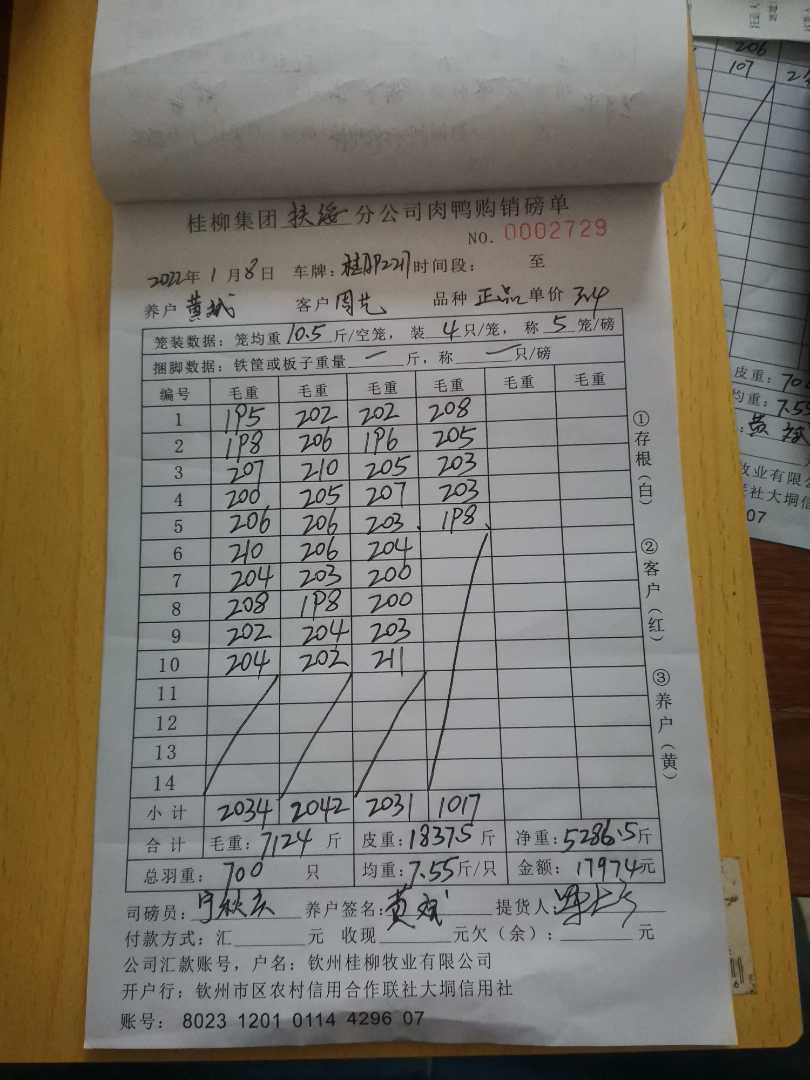 桂柳集团扶绥分公司肉鸭购销磅单
NO. 0002729
2022年1月8日 车牌: 时间段: 至
养户 黄斌 客户 周艺 品种 正品 单价 3.4
笼装数据: 笼均重 10.5 斤/空笼, 装 4 只/笼, 称 5 笼/磅
捆脚数据: 铁筐或板子重量 一 斤, 称 一 只/磅
编号 毛重 毛重 毛重 毛重 毛重 毛重
1 195 202 202 208
2 198 206 196 205
3 207 210 205 203
4 200 205 207 203
5 206 206 203 198
6 210 206 204
7 204 203 200
8 208 198 200
9 202 204 203
10 204 202 211
11
12
13
14
小计 2034 2042 2031 1017
合计 毛重: 7124 斤 皮重: 1837.5 斤 净重: 5286.5 斤
总羽重: 700 只 均重: 7.55 斤/只 金额: 17974 元
司磅员: 养户签名: 黄斌 提货人:
付款方式: 汇 元 收现 元欠(余): 元
公司汇款账号, 户名: 钦州桂柳牧业有限公司
开户行: 钦州市区农村信用合作联社大垌信用社
账号: 8023 1201 0114 4296 07
①存根(白)
②客户(红)
③养户(黄)
206
107
皮重: 70
均重: 7.55
黄斌
牧业有限公
联社大垌信
07